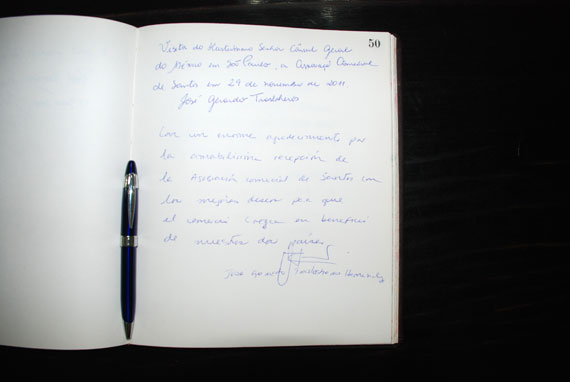 50
Visita do Ilustríssimo Senhor Cônsul Geral
do México em São Paulo, a Associação Comercial
de Santos em 29 de novembro de 2011
José Gerardo
Con un enorme agradecimiento por
la amabilísima recepción de
la Asociación comercial de Santos con
los mejores deseos para que
el comercio crezca en beneficio
de nuestros dos países